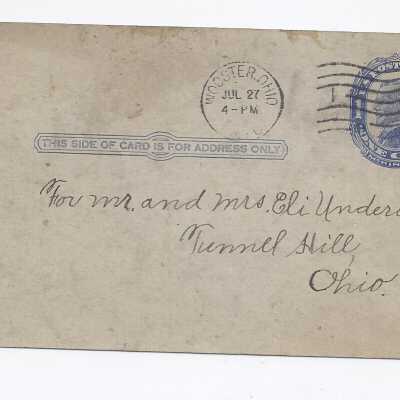 WOOSTER, OHIO
JUL 27
4-PM
THIS SIDE OF CARD IS FOR ADDRESS ONLY
For Mr. and Mrs. Eli Under
Tunnel Hill,
Ohio.